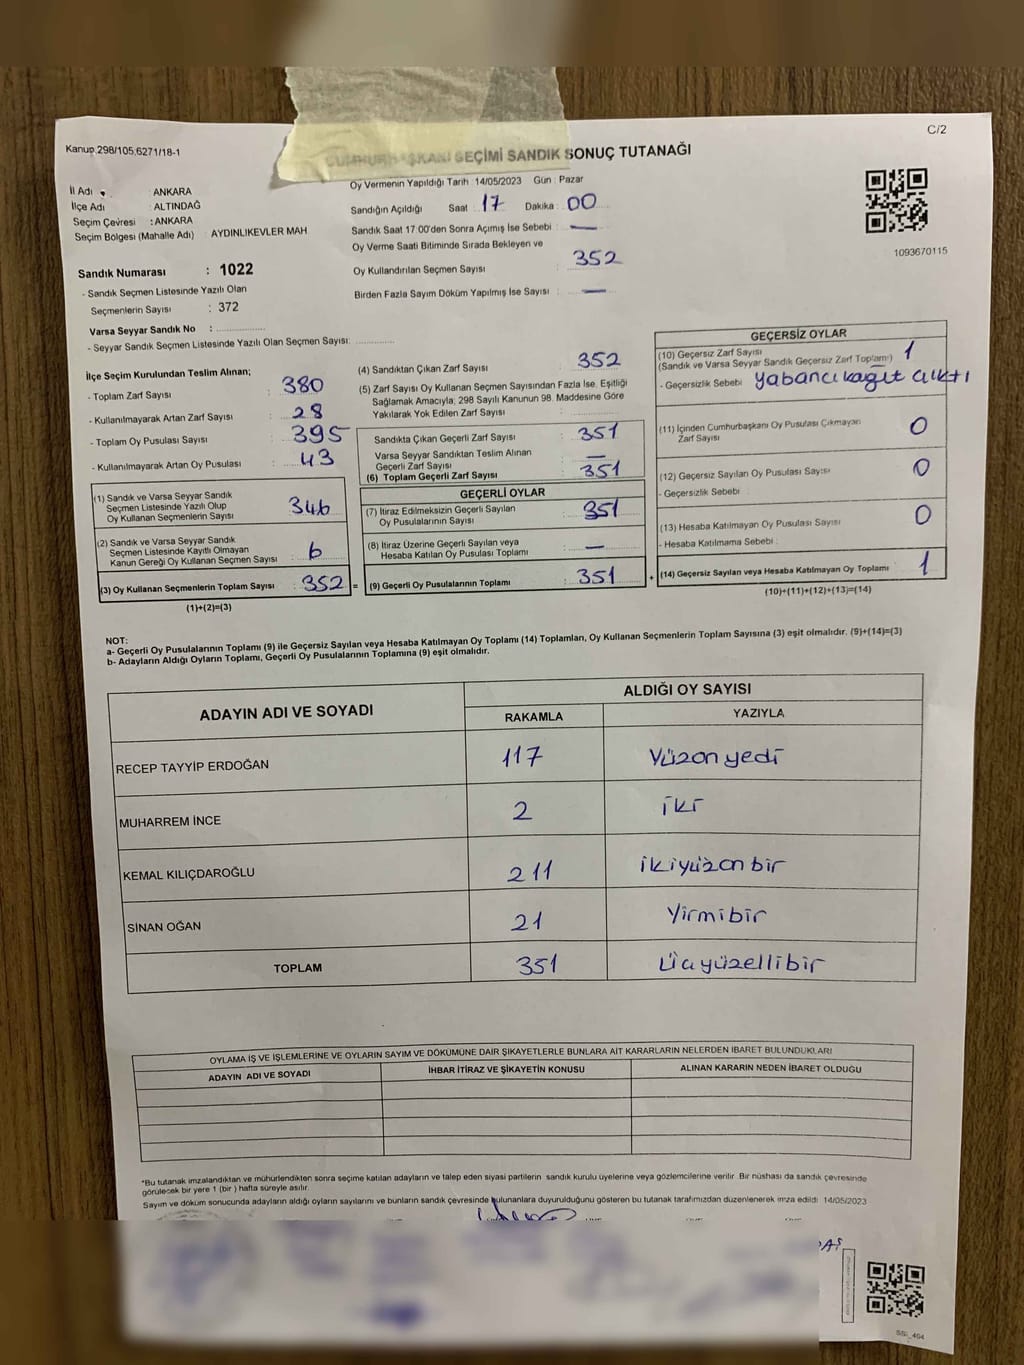 C/2
Kanun 298/105,6271/18-1
CUMHURBAŞKANI SEÇİMİ SANDIK SONUÇ TUTANAĞI
İl Adı : ANKARA
İlçe Adı : ALTINDAĞ
Seçim Çevresi : ANKARA
Seçim Bölgesi (Mahalle Adı) AYDINLIKEVLER MAH
Sandık Numarası : 1022
- Sandık Seçmen Listesinde Yazılı Olan
Seçmenlerin Sayısı : 372
Varsa Seyyar Sandık No :
- Seyyar Sandık Seçmen Listesinde Yazılı Olan Seçmen Sayısı:
Oy Vermenin Yapıldığı Tarih : 14/05/2023 Gün : Pazar
Sandığın Açıldığı Saat 17 Dakika : 00
Sandık Saat 17:00'den Sonra Açımış İse Sebebi : —
Oy Verme Saati Bitiminde Sırada Bekleyen ve
Oy Kullandırılan Seçmen Sayısı : 352
Birden Fazla Sayım Döküm Yapılmış İse Sayısı : —
1093670115
İlçe Seçim Kurulundan Teslim Alınan;
- Toplam Zarf Sayısı : 380
- Kullanılmayarak Artan Zarf Sayısı : 28
- Toplam Oy Pusulası Sayısı : 395
- Kullanılmayarak Artan Oy Pusulası : 43
(1) Sandık ve Varsa Seyyar Sandık
Seçmen Listesinde Yazılı Olup
Oy Kullanan Seçmenlerin Sayısı 346
(2) Sandık ve Varsa Seyyar Sandık
Seçmen Listesinde Kayıtlı Olmayan
Kanun Gereği Oy Kullanan Seçmen Sayısı 6
(3) Oy Kullanan Seçmenlerin Toplam Sayısı : 352 =
(1)+(2)=(3)
(4) Sandıktan Çıkan Zarf Sayısı : 352
(5) Zarf Sayısı Oy Kullanan Seçmen Sayısından Fazla İse, Eşitliği
Sağlamak Amacıyla; 298 Sayılı Kanunun 98. Maddesine Göre
Yakılarak Yok Edilen Zarf Sayısı :
Sandıkta Çıkan Geçerli Zarf Sayısı : 351
Varsa Seyyar Sandıktan Teslim Alınan
Geçerli Zarf Sayısı —
(6) Toplam Geçerli Zarf Sayısı : 351
GEÇERLİ OYLAR
(7) İtiraz Edilmeksizin Geçerli Sayılan
Oy Pusulalarının Sayısı : 351
(8) İtiraz Üzerine Geçerli Sayılan veya
Hesaba Katılan Oy Pusulası Toplamı : —
(9) Geçerli Oy Pusulalarının Toplamı : 351 +
GEÇERSİZ OYLAR
(10) Geçersiz Zarf Sayısı
(Sandık ve Varsa Seyyar Sandık Geçersiz Zarf Toplamı) 1
- Geçersizlik Sebebi : Yabancı kağıt çıktı
(11) İçinden Cumhurbaşkanı Oy Pusulası Çıkmayan
Zarf Sayısı 0
(12) Geçersiz Sayılan Oy Pusulası Sayısı : 0
- Geçersizlik Sebebi :
(13) Hesaba Katılmayan Oy Pusulası Sayısı 0
- Hesaba Katılmama Sebebi :
(14) Geçersiz Sayılan veya Hesaba Katılmayan Oy Toplamı : 1
(10)+(11)+(12)+(13)=(14)
NOT:
a- Geçerli Oy Pusulalarının Toplamı (9) ile Geçersiz Sayılan veya Hesaba Katılmayan Oy Toplamı (14) Toplamları, Oy Kullanan Seçmenlerin Toplam Sayısına (3) eşit olmalıdır. (9)+(14)=(3)
b- Adayların Aldığı Oyların Toplamı, Geçerli Oy Pusulalarının Toplamına (9) eşit olmalıdır.
ADAYIN ADI VE SOYADI ALDIĞI OY SAYISI
RAKAMLA YAZIYLA
RECEP TAYYİP ERDOĞAN 117 Yüzonyedi
MUHARREM İNCE 2 iki
KEMAL KILIÇDAROĞLU 211 ikiyüzonbir
SİNAN OĞAN 21 Yirmibir
TOPLAM 351 Üçyüzellibir
OYLAMA İŞ VE İŞLEMLERİNE VE OYLARIN SAYIM VE DÖKÜMÜNE DAİR ŞİKAYETLERLE BUNLARA AİT KARARLARIN NELERDEN İBARET BULUNDUKLARI
ADAYIN ADI VE SOYADI İHBAR İTİRAZ VE ŞİKAYETİN KONUSU ALINAN KARARIN NEDEN İBARET OLDUĞU
*Bu tutanak imzalandıktan ve mühürlendikten sonra seçime katılan adayların ve talep eden siyasi partilerin sandık kurulu üyelerine veya gözlemcilerine verilir. Bir nüshası da sandık çevresinde
görülecek bir yere 1 (bir) hafta süreyle asılır.
Sayım ve döküm sonucunda adayların aldığı oyların sayılarını ve bunların sandık çevresinde bulunanlara duyurulduğunu gösteren bu tutanak tarafımızdan düzenlenerek imza edildi 14/05/2023